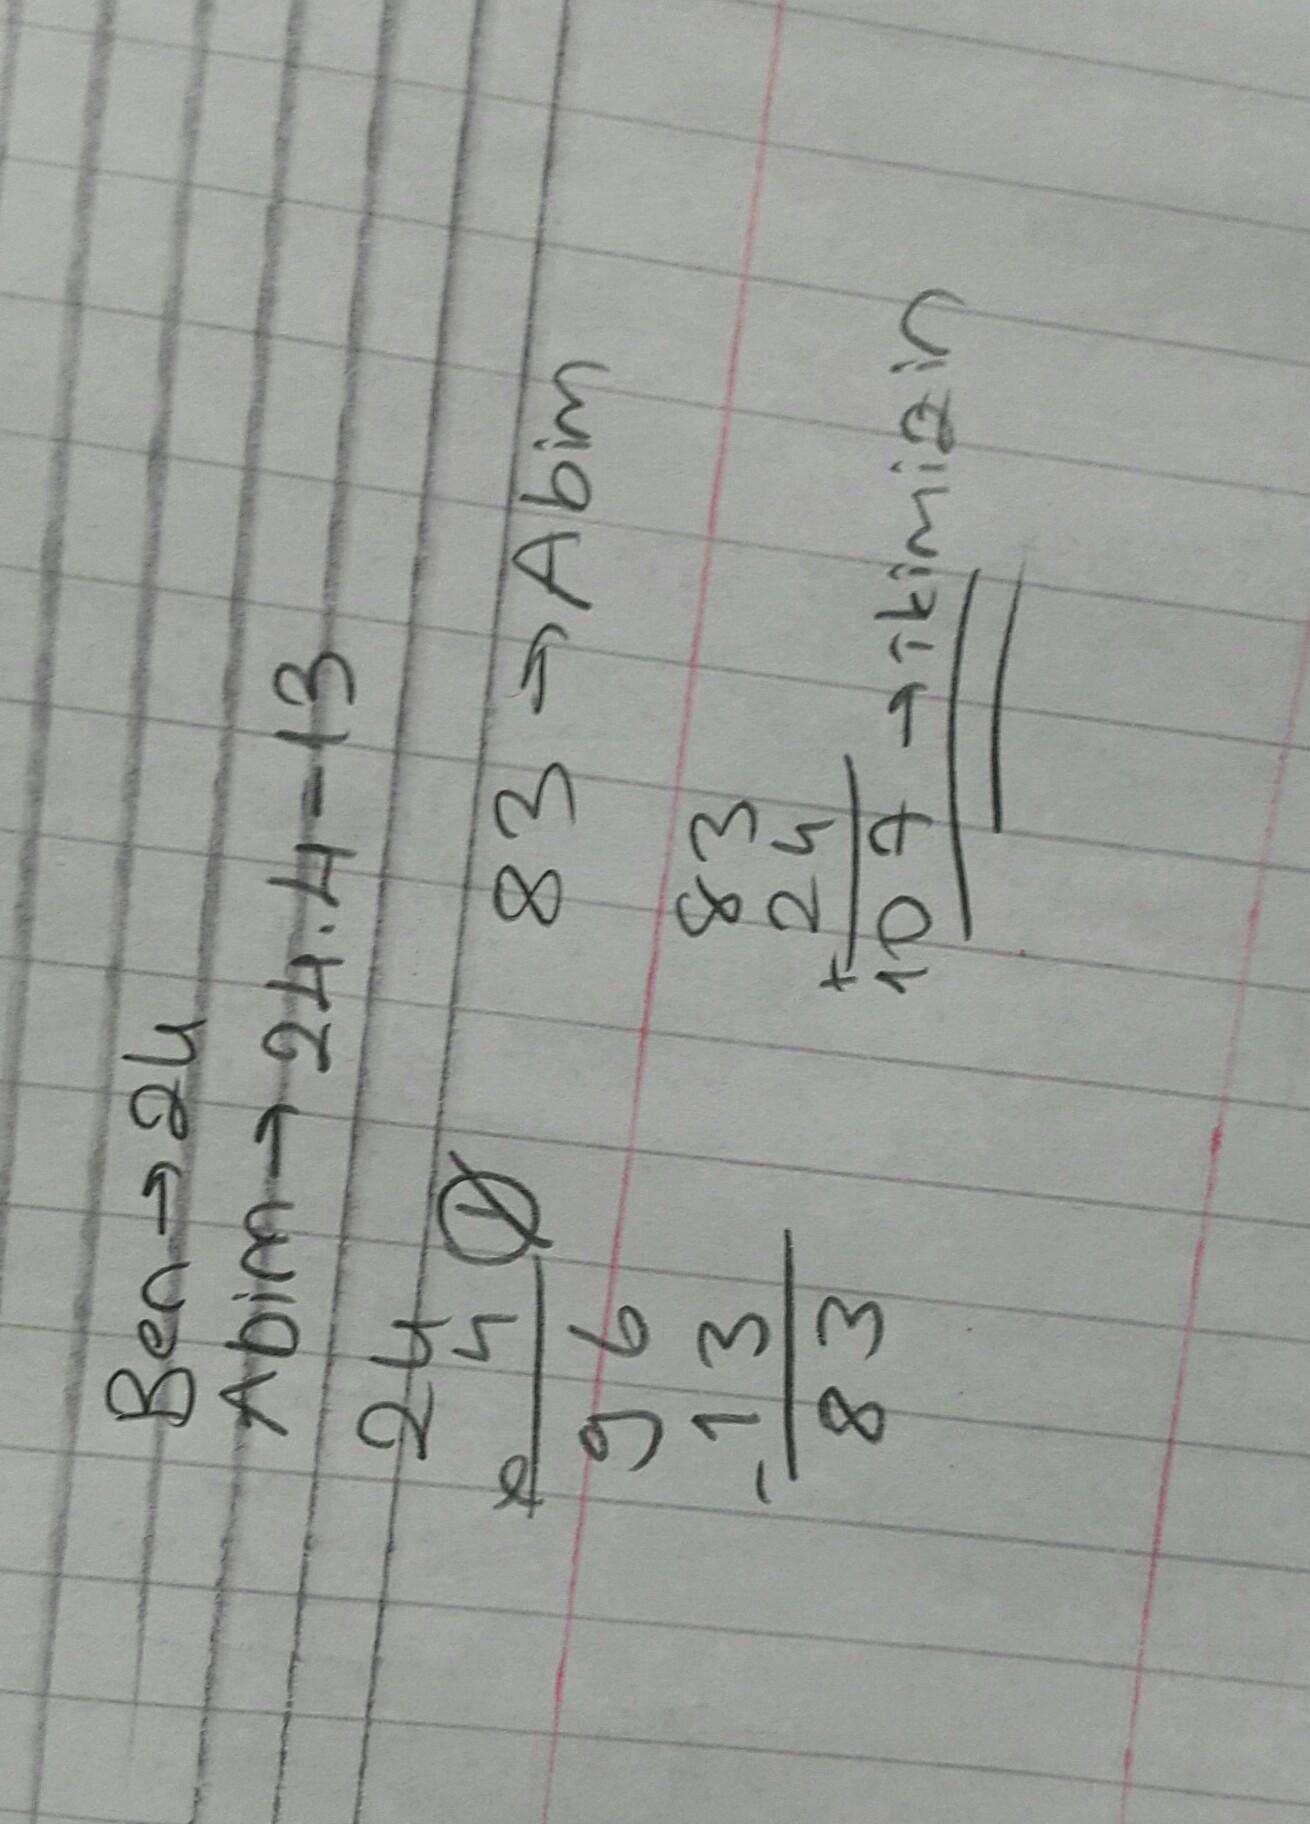 Ben → 24
Abim → 24.4-13
24
x 4
96
- 13
83
83 → Abim
83
+ 24
107 → ikimizin